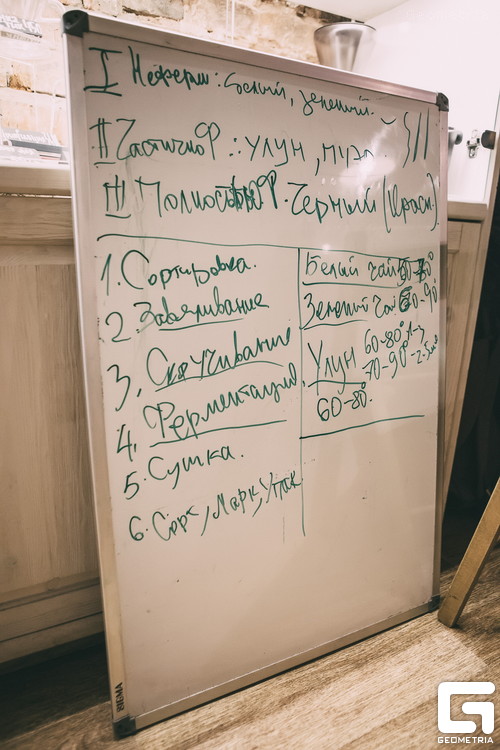 I Неферм: белый, зеленый.
II Частично Ф.: улун,
III Полностью Ф. Черный (Красн)
1. Сортировка.
2. Завяливание
3. Скручивание
4. Ферментация
5. Сушка.
6. Сорт, Марк, Упак
Белый чай
Зеленый чай 60-90°
Улун 60-80°
70-90°
60-80.
SIGMA
G
GEOMETRIA